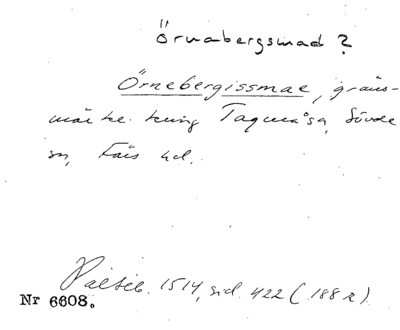 Örnabergsmad ?
Örnebergissmae, gräns-
märke kring Tagmåsa, Sövde
sn, Färs hd.
Palteb. 1514, sid. 422 (188 r)
Nr 6608.